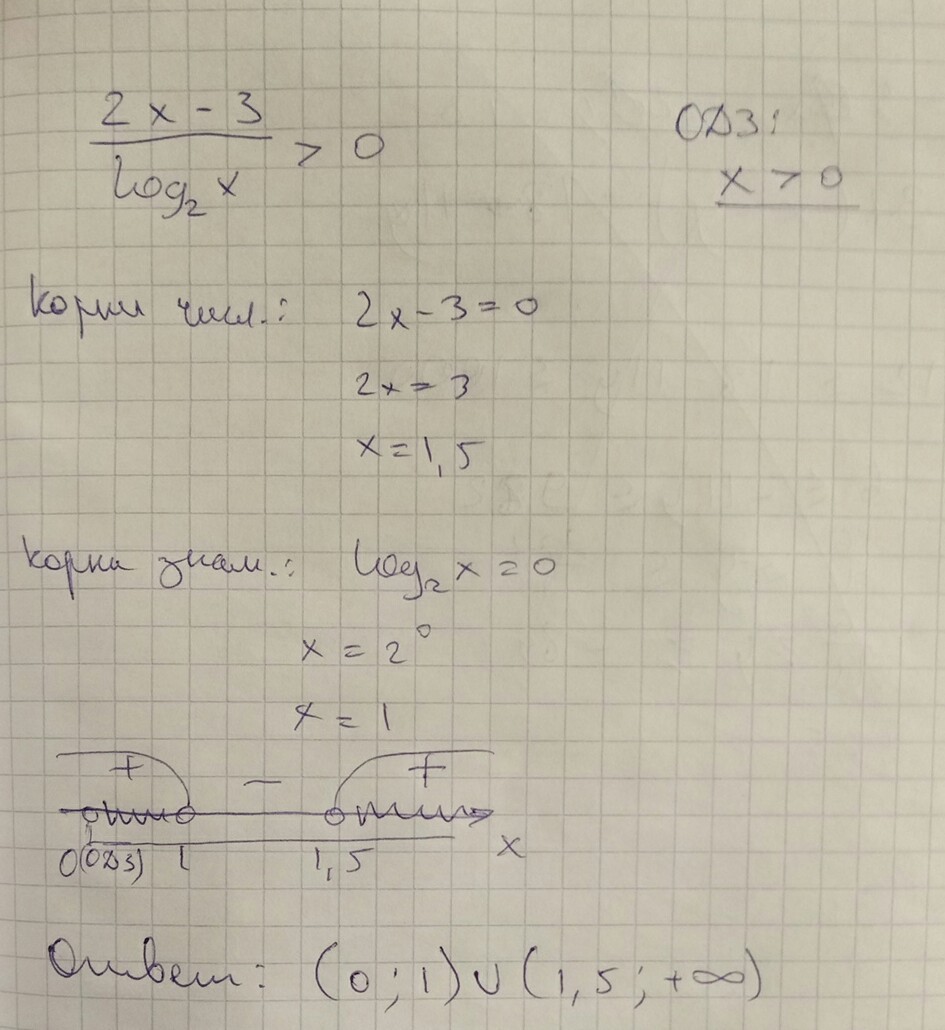 2x - 3
log₂ x
> 0
ОДЗ:
x > 0
Корни числ.: 2x - 3 = 0
2x = 3
x = 1,5
Корни знам.: log₂ x = 0
x = 2⁰
x = 1
+ − +
0(ОДЗ) 1 1,5 x
Ответ: (0; 1) ∪ (1,5; +∞)